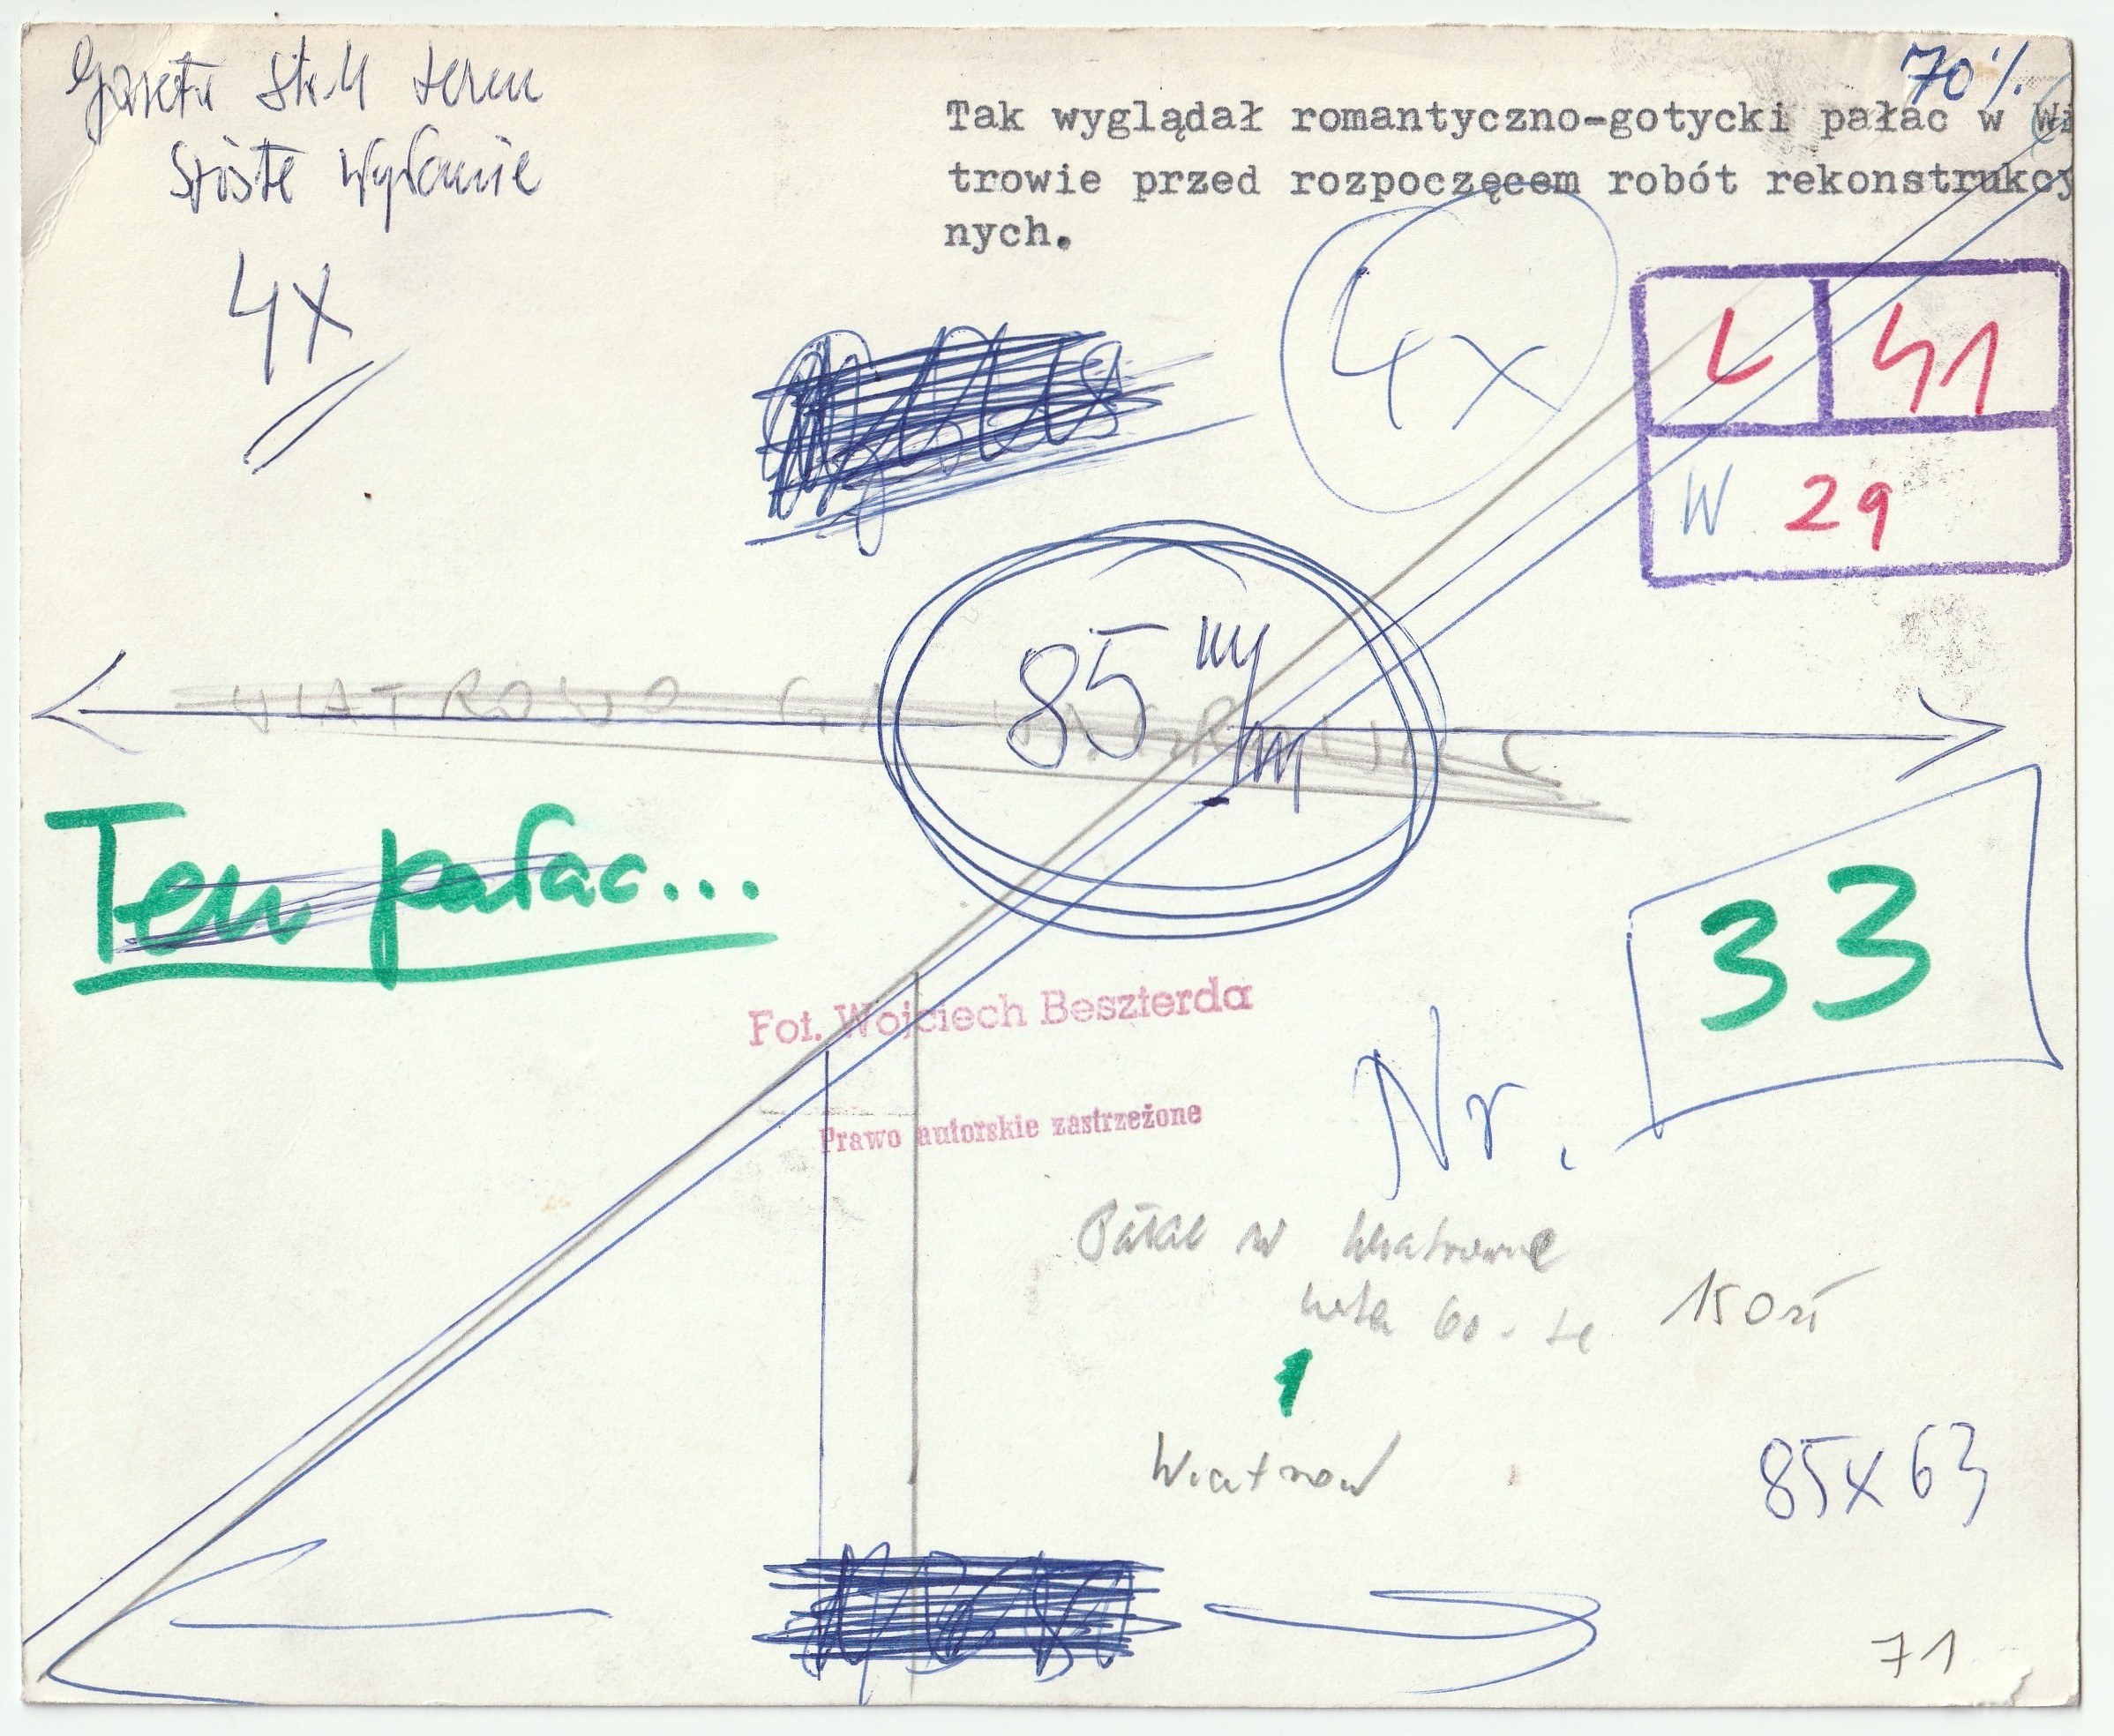 70%
Tak wyglądał romantyczno-gotycki pałac w Wi
trowie przed rozpoczęcem robót rekonstrukcy
nych.
4x
4x
L 41
W 29
85 m/m
WIATROWO
Ten pałac...
33
Fot. Wojciech Beszterda
Nr.
Prawo autorskie zastrzeżone
Pałac w Wiatrowie
lata 60-te
150 zł
1
Wiatrowo
85x63
71